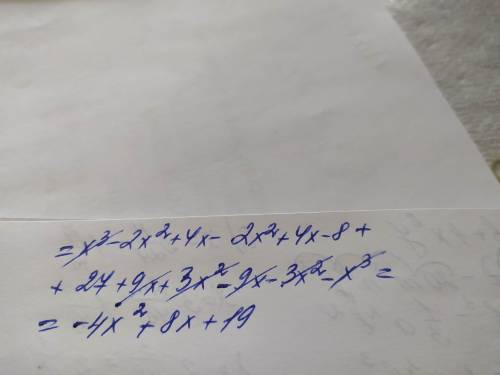 = x³ - 2x² + 4x - 2x² + 4x - 8 +
+ 27 + 9x + 3x² - 9x - 3x² - x³ =
= -4x² + 8x + 19